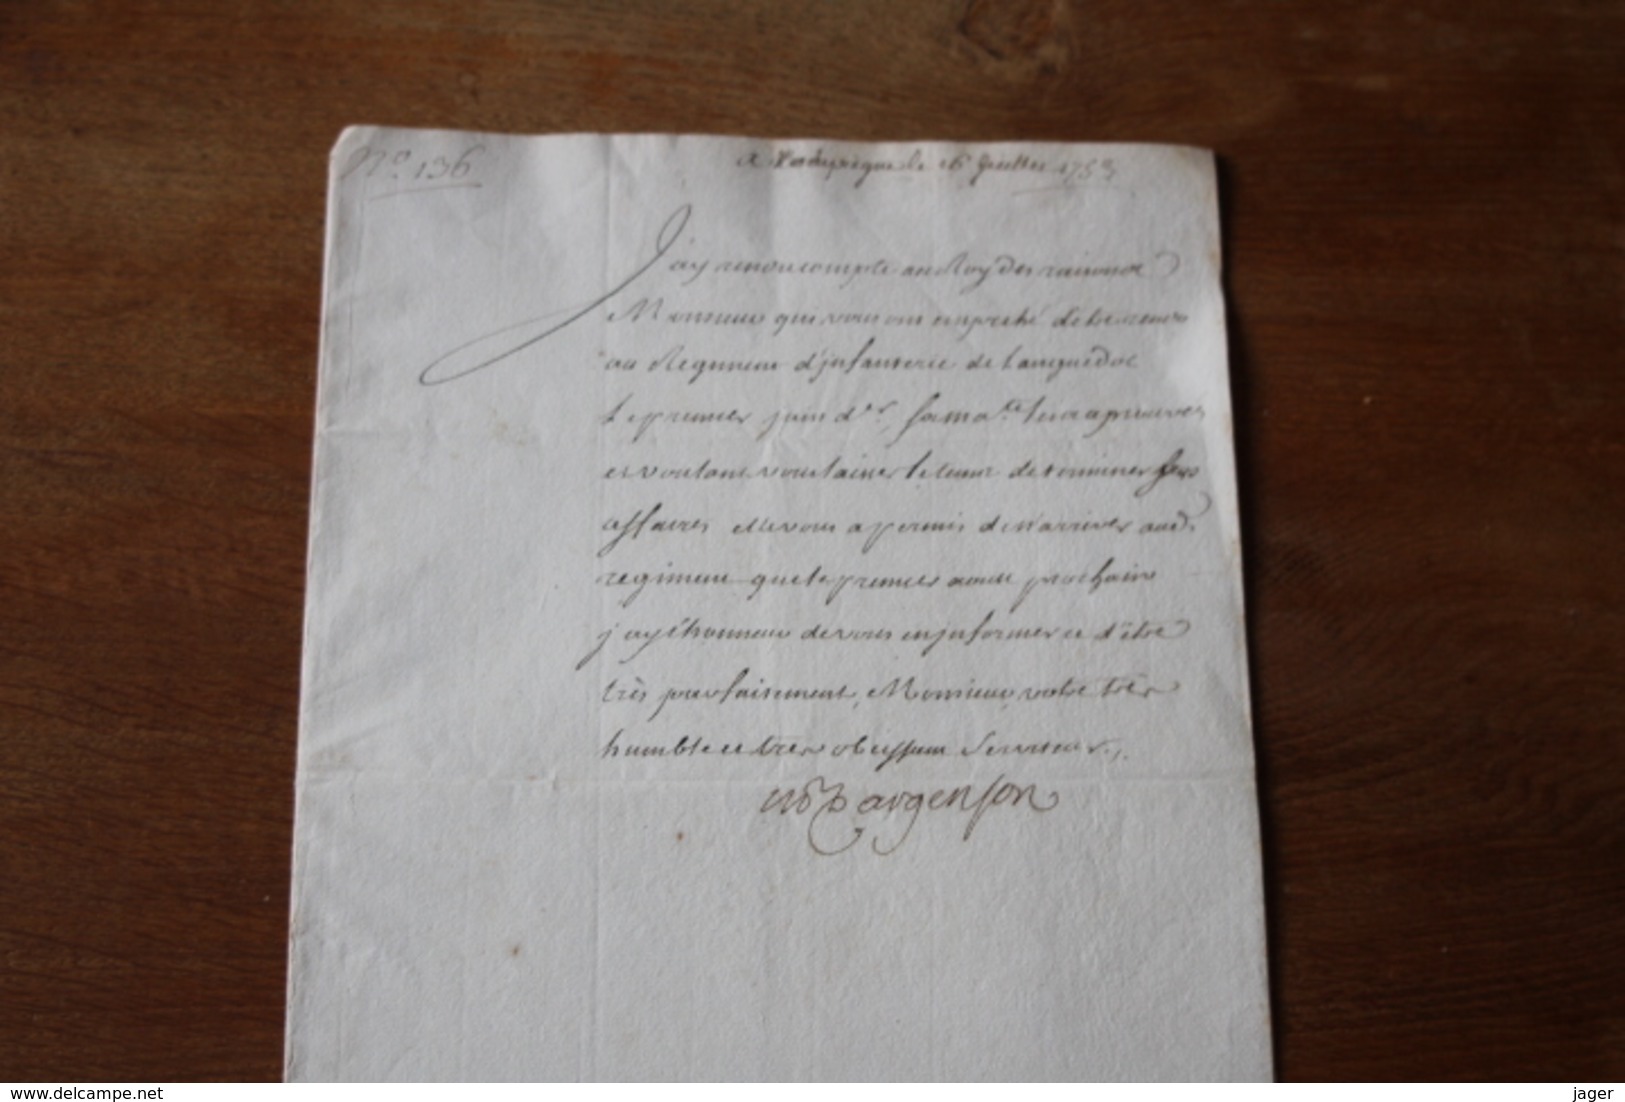 N.º 136
a Compiegne le 16 Juillet 1753
J'ay rendu compte au Roy des raisons
Monsieur qui vous ont empeché de be rendre
au Regiment d'jnfanterie de Languedoc
le premier juin d.er, Sa ma.té les a aprouvées
et voulant vous laisser le tems de terminer
affaires Elle vous a permis de n'arriver aud.
regiment que le premier aoust prochain
j'ay l'honneur de vous en jnformer et d'être
très parfaitement, Monsieur, votre très
humble et tres obeissant Serviteur./.
M P Dargenson
delcampe.net
jager